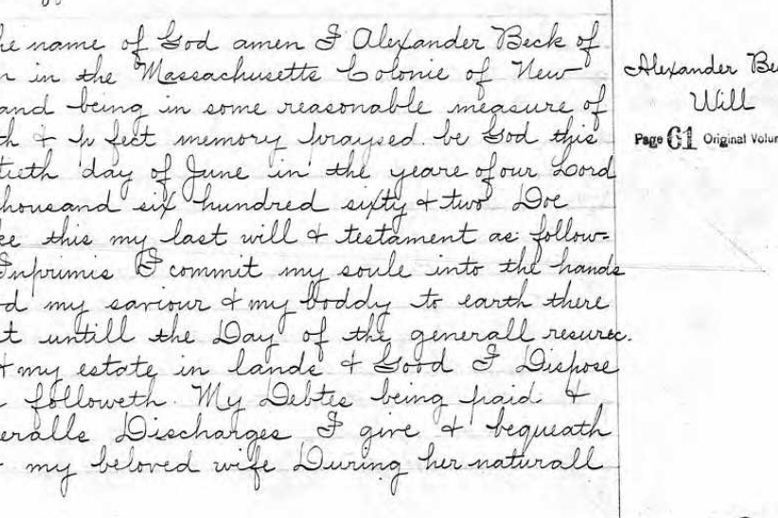 he name of God amen I Alexander Beck of
n in the Massachusetts Colonie of New
and being in some reasonable measure of
th & p fect memory praysed. be God this
tieth day of June in the yeare of our Lord
thousand six hundred sixty & two Doe
ke this my last will & testament as follow=
Inprimis I commit my soule into the hands
d my saviour & my boddy to earth there
t untill the Day of the generall resurec.
& my estate in lands & Good I Dispose
followeth. My Debtes being paid &
eralls Discharges I give & bequeath
my beloved wife During her naturall
Alexander Be
Will
Page 61 Original Volum